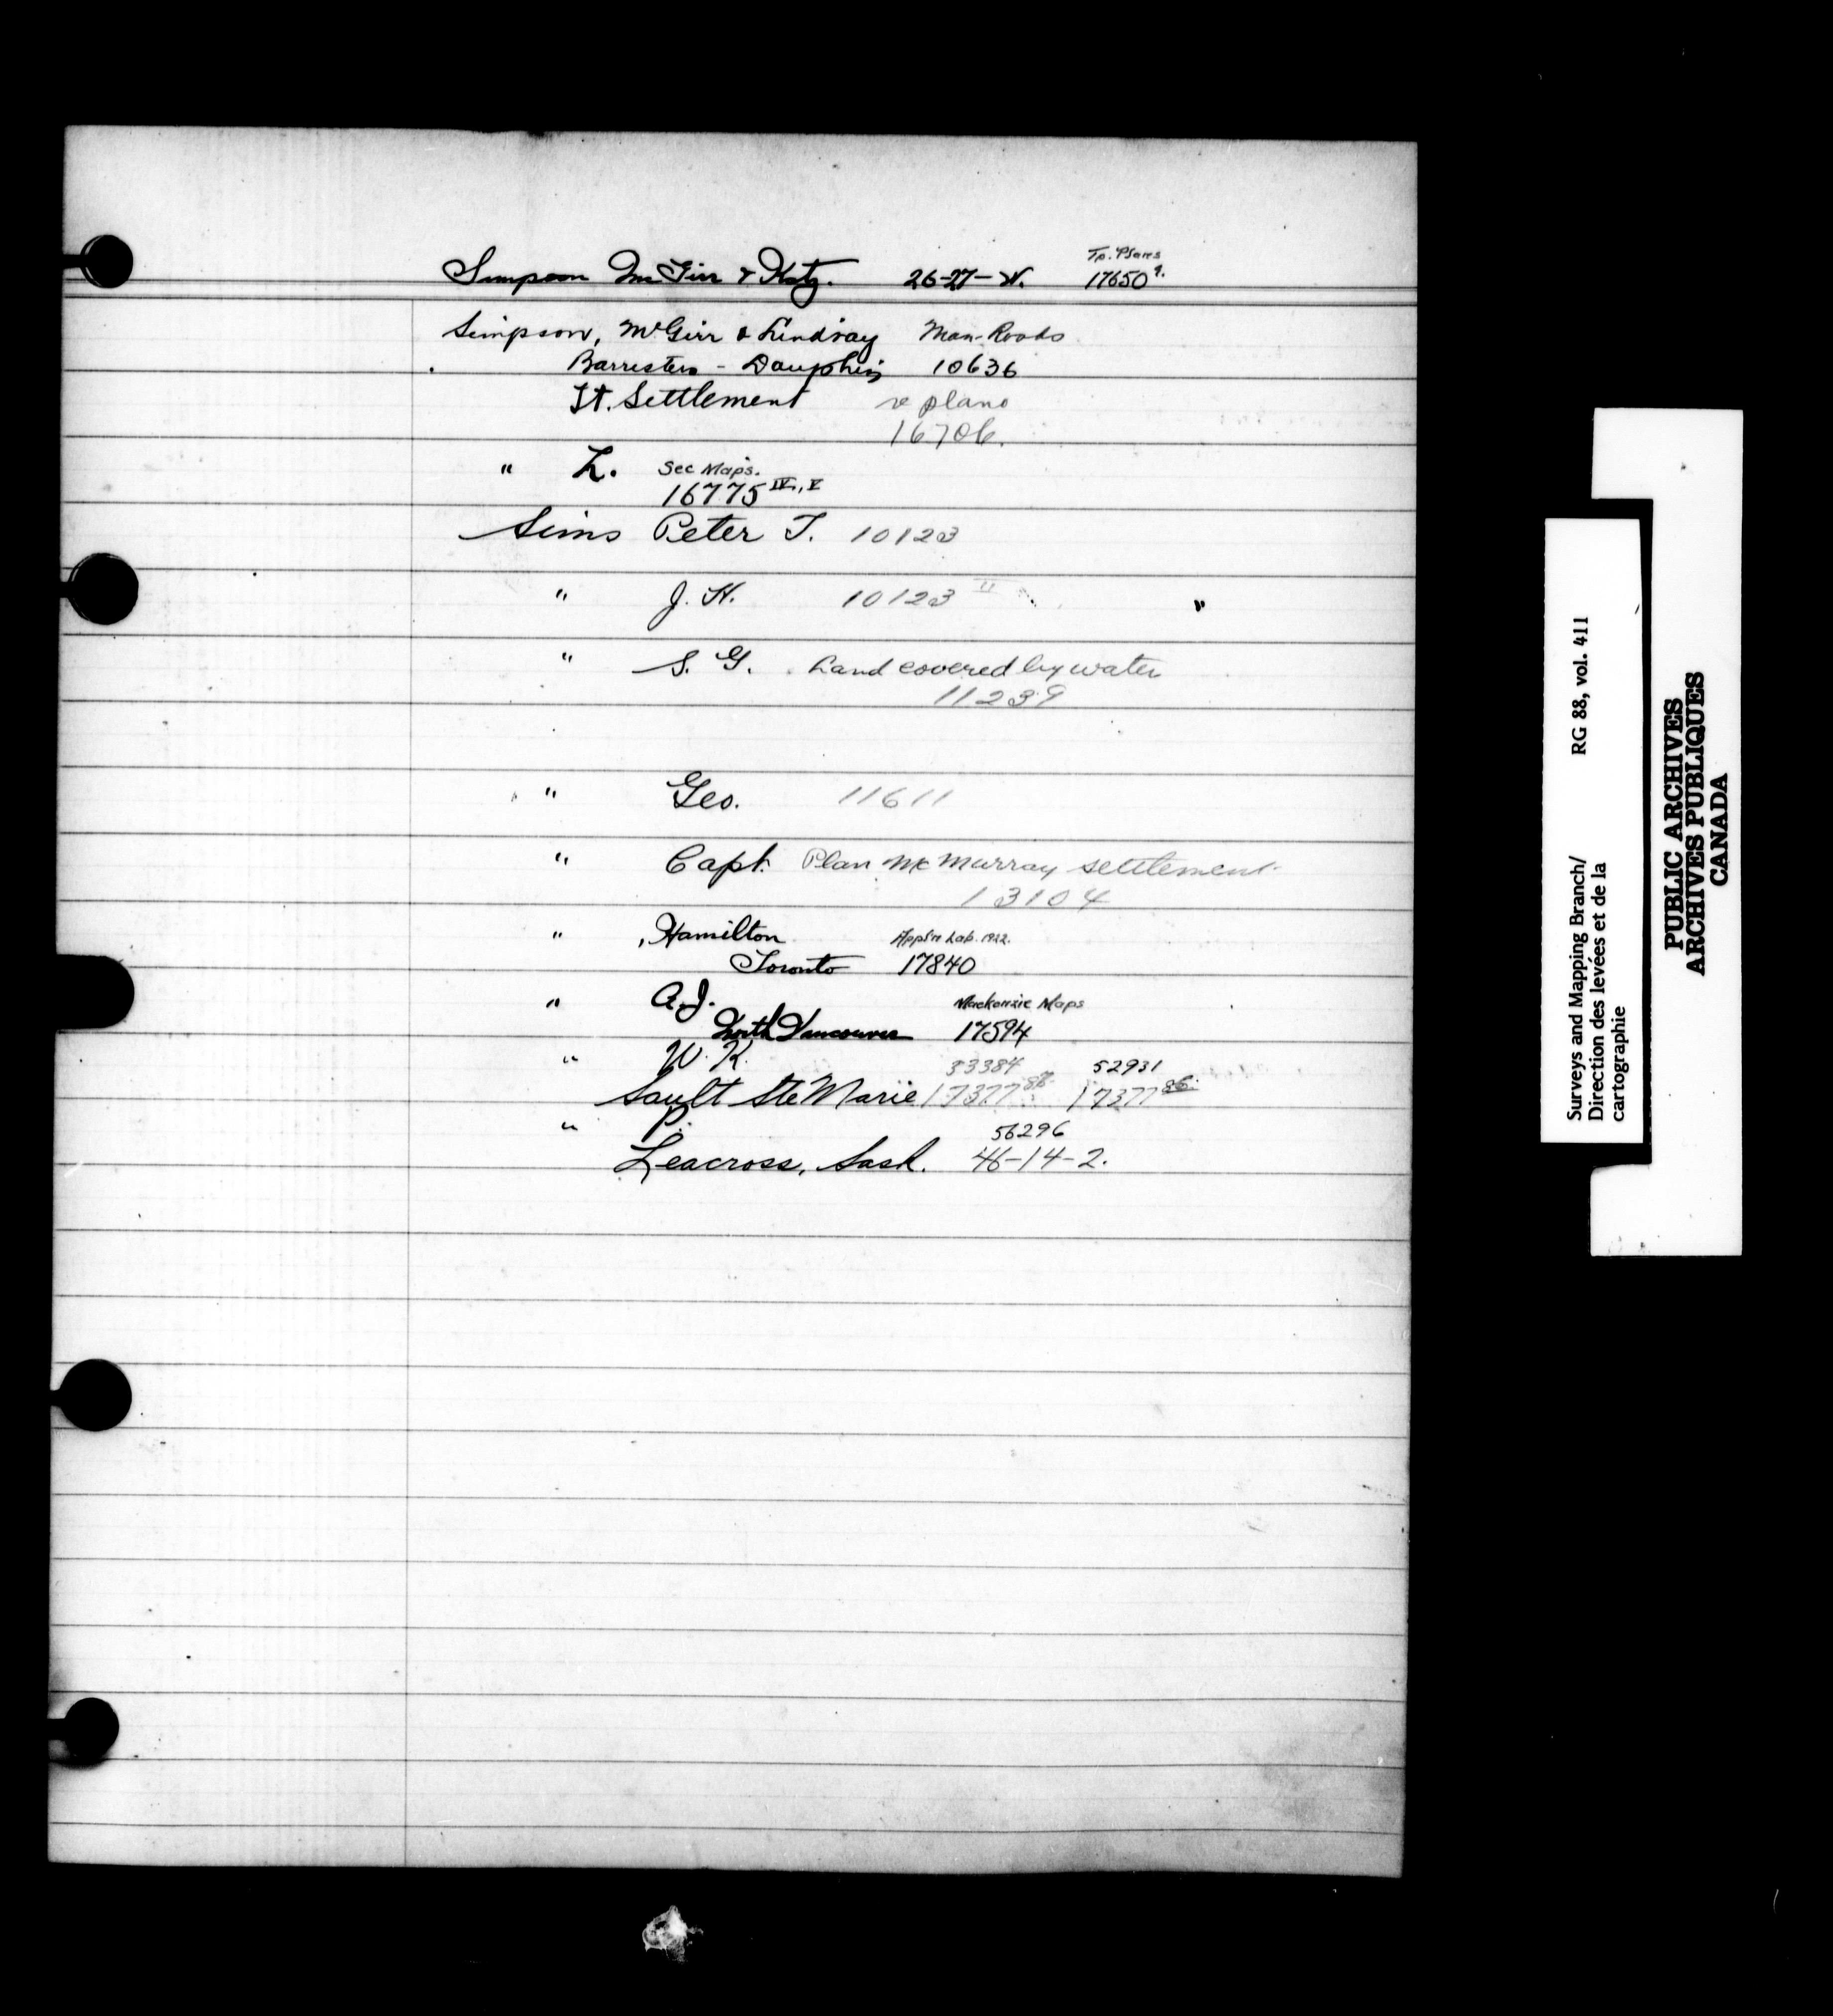 Tp. Plans
Simpson McGirr & Katz. 26-27-W. 17650 9.
Simpson, McGirr & Lindsay Man-Roads
Barristers - Dauphin 10636
Ft. Settlement re plans
16706.
" L. Sec Maps.
16775 IV, V
Sims Peter T. 10123
" J. H. 10123 II "
" S. G. Land covered by water
11239
" Geo. 11611
" Capt. Plan McMurray settlement
13104
" Hamilton Applr Lab. 1922.
Toronto 17840
" A. J. Mackenzie Maps
North Vancouver 17594
" W. K. 53384 52931
Sault Ste Marie 17377 17377 86
" P. 56296
Leacross, Sask. 46-14-2.
Surveys and Mapping Branch/ RG 88, vol. 411
Direction des levées et de la
cartographie
PUBLIC ARCHIVES
ARCHIVES PUBLIQUES
CANADA